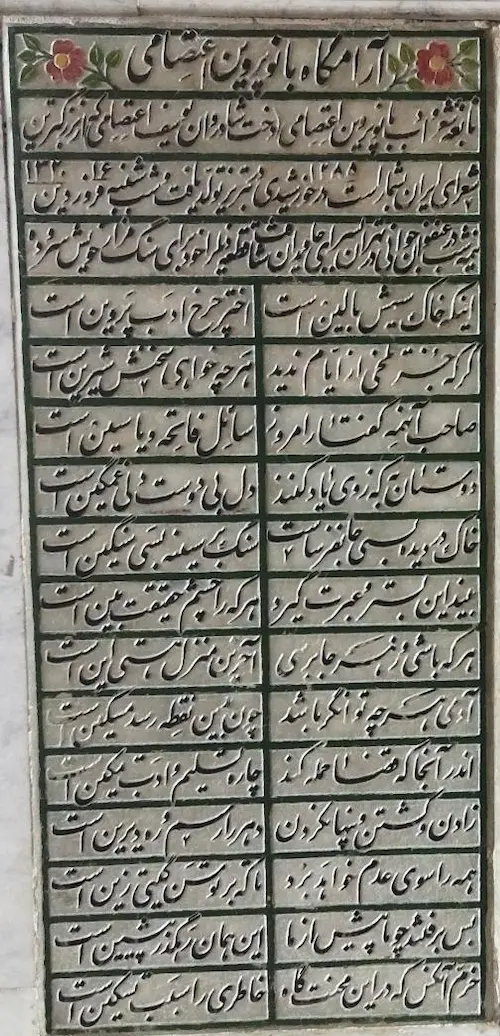 آرامگاه بانو پروین اعتصامی
نابغه شعر و ادب بانو پروین اعتصامی دخت شادروان یوسف اعتصامی که از بزرگترین
شعرای ایران بشمار است در ۱۲۸۵ خورشیدی در تبریز تولد یافت و شب شنبه ۱۶ فروردین ۱۳۲۰
نیمه شب در عنفوان جوانی در تهران بسرای جاویدان شتافت قطعه ذیل را خود برای سنگ مزار خویش سروده
اینکه خاک سیهش بالین است اختر چرخ ادب پروین است
گرچه جز تلخی از ایام ندید هرچه خواهی سخنش شیرین است
صاحب آنهمه گفتار امروز سائل فاتحه و یاسین است
دوستان به که ز وی یاد کنند دل بی دوست دلی غمگین است
خاک در دیده بسی جانفرساست سنگ بر سینه بسی سنگین است
بیند این بستر و عبرت گیرد هر که را چشم حقیقت بین است
هر که باشی و ز هر جا برسی آخرین منزل هستی این است
آدمی هر چه توانگر باشد چون بدین نقطه رسد مسکین است
اندر آنجا که قضا حمله کند چاره تسلیم و ادب تمکین است
زادن و کشتن و پنهان کردن دهر را رسم و ره دیرین است
همه را سوی عدم خواهد برد تا که بر توسن گیتی زین است
بس برفتند چو ما پیش از ما این همان رهگذر پیشین است
خرم آنکس که در این محنت گاه خاطری را سبب تسکین است